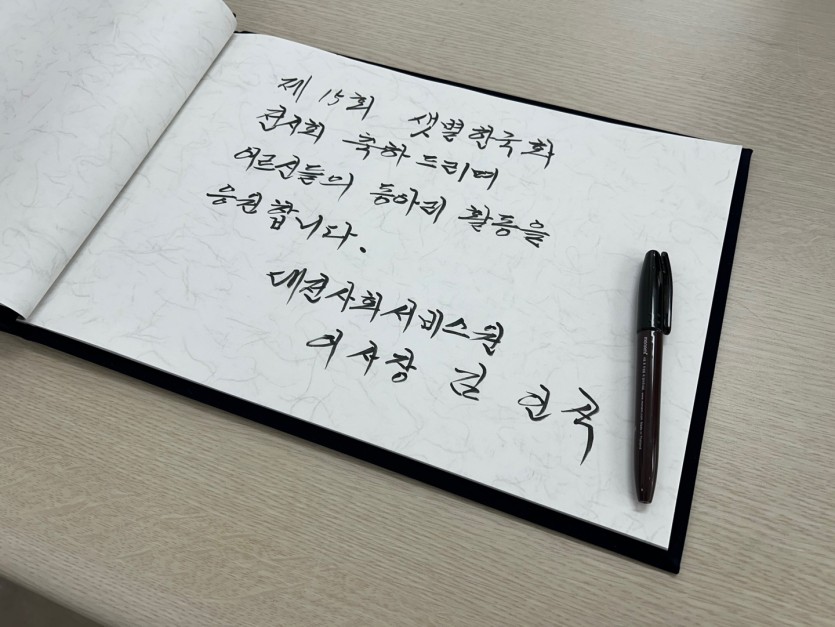 제 15회 샛별한국화
전시회 축하드리며
어르신들의 동아리 활동을
응원합니다.
대전사회서비스원
이사장 김인식